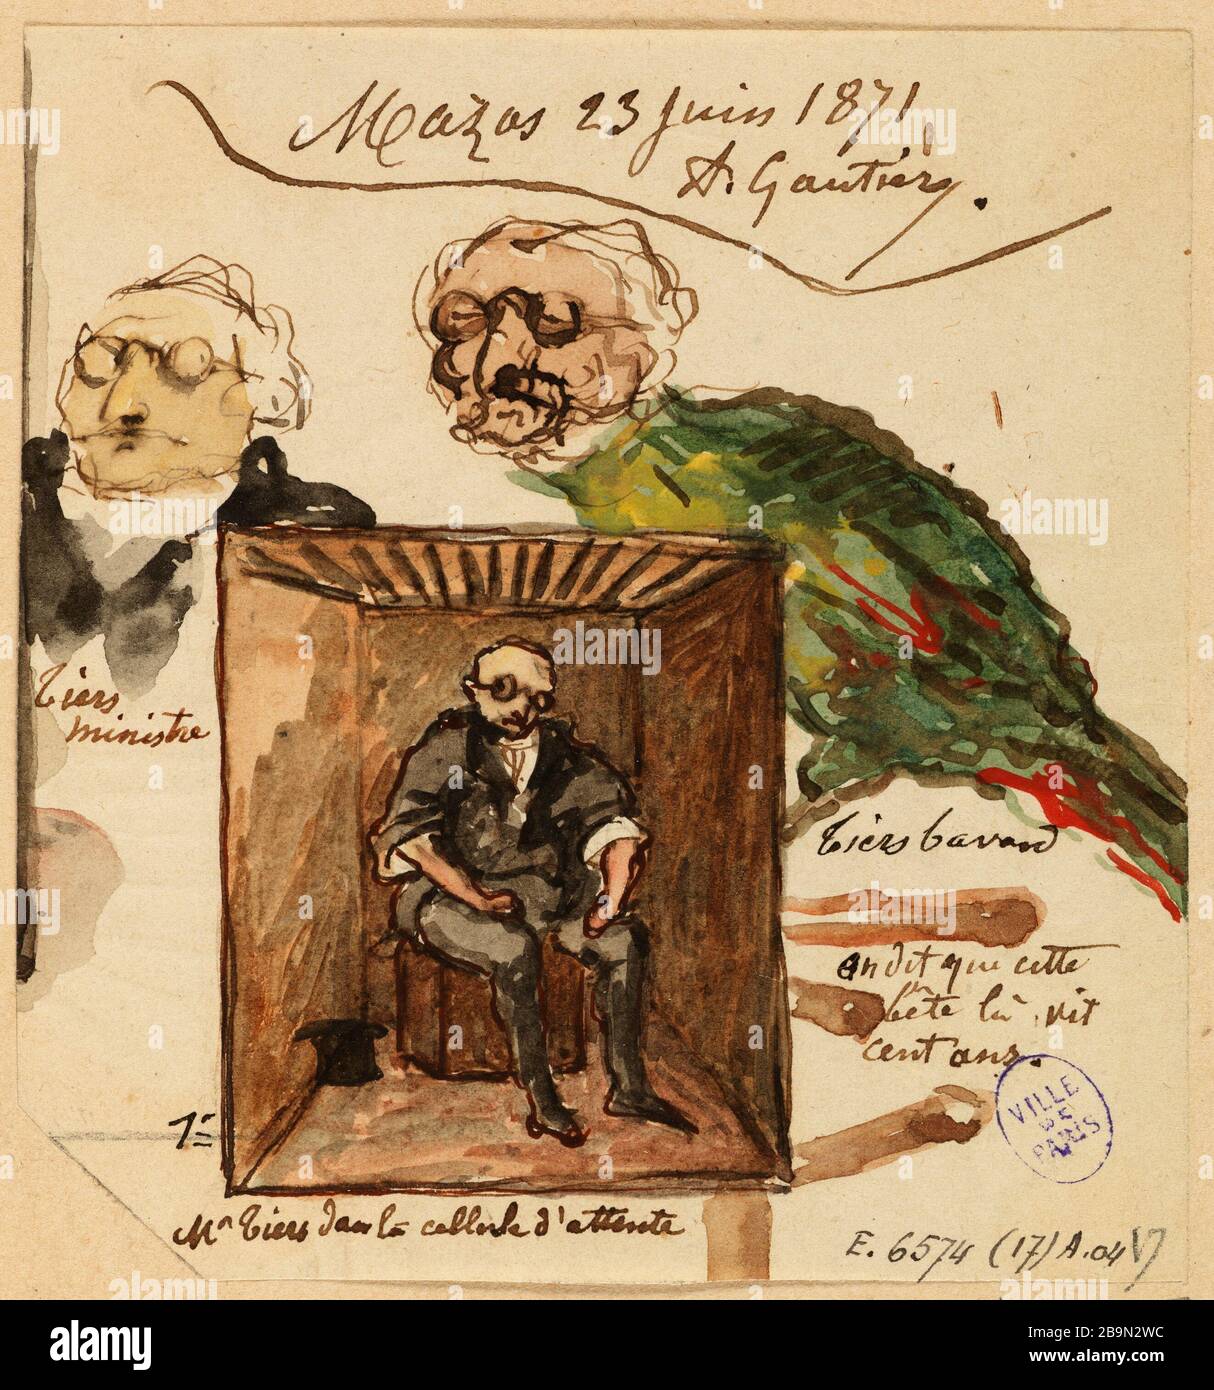 Mazas 23 Juin 1871
A. Gautier.
Tiers
ministre
Tiers bavard
on dit que cette
bête là vit
cent ans.
VILLE
DE
PARIS
1er
Mr Tiers dans la cellule d'attente
E. 6574 (17) A.04
alamy
Image ID: 2B9N2WC
www.alamy.com